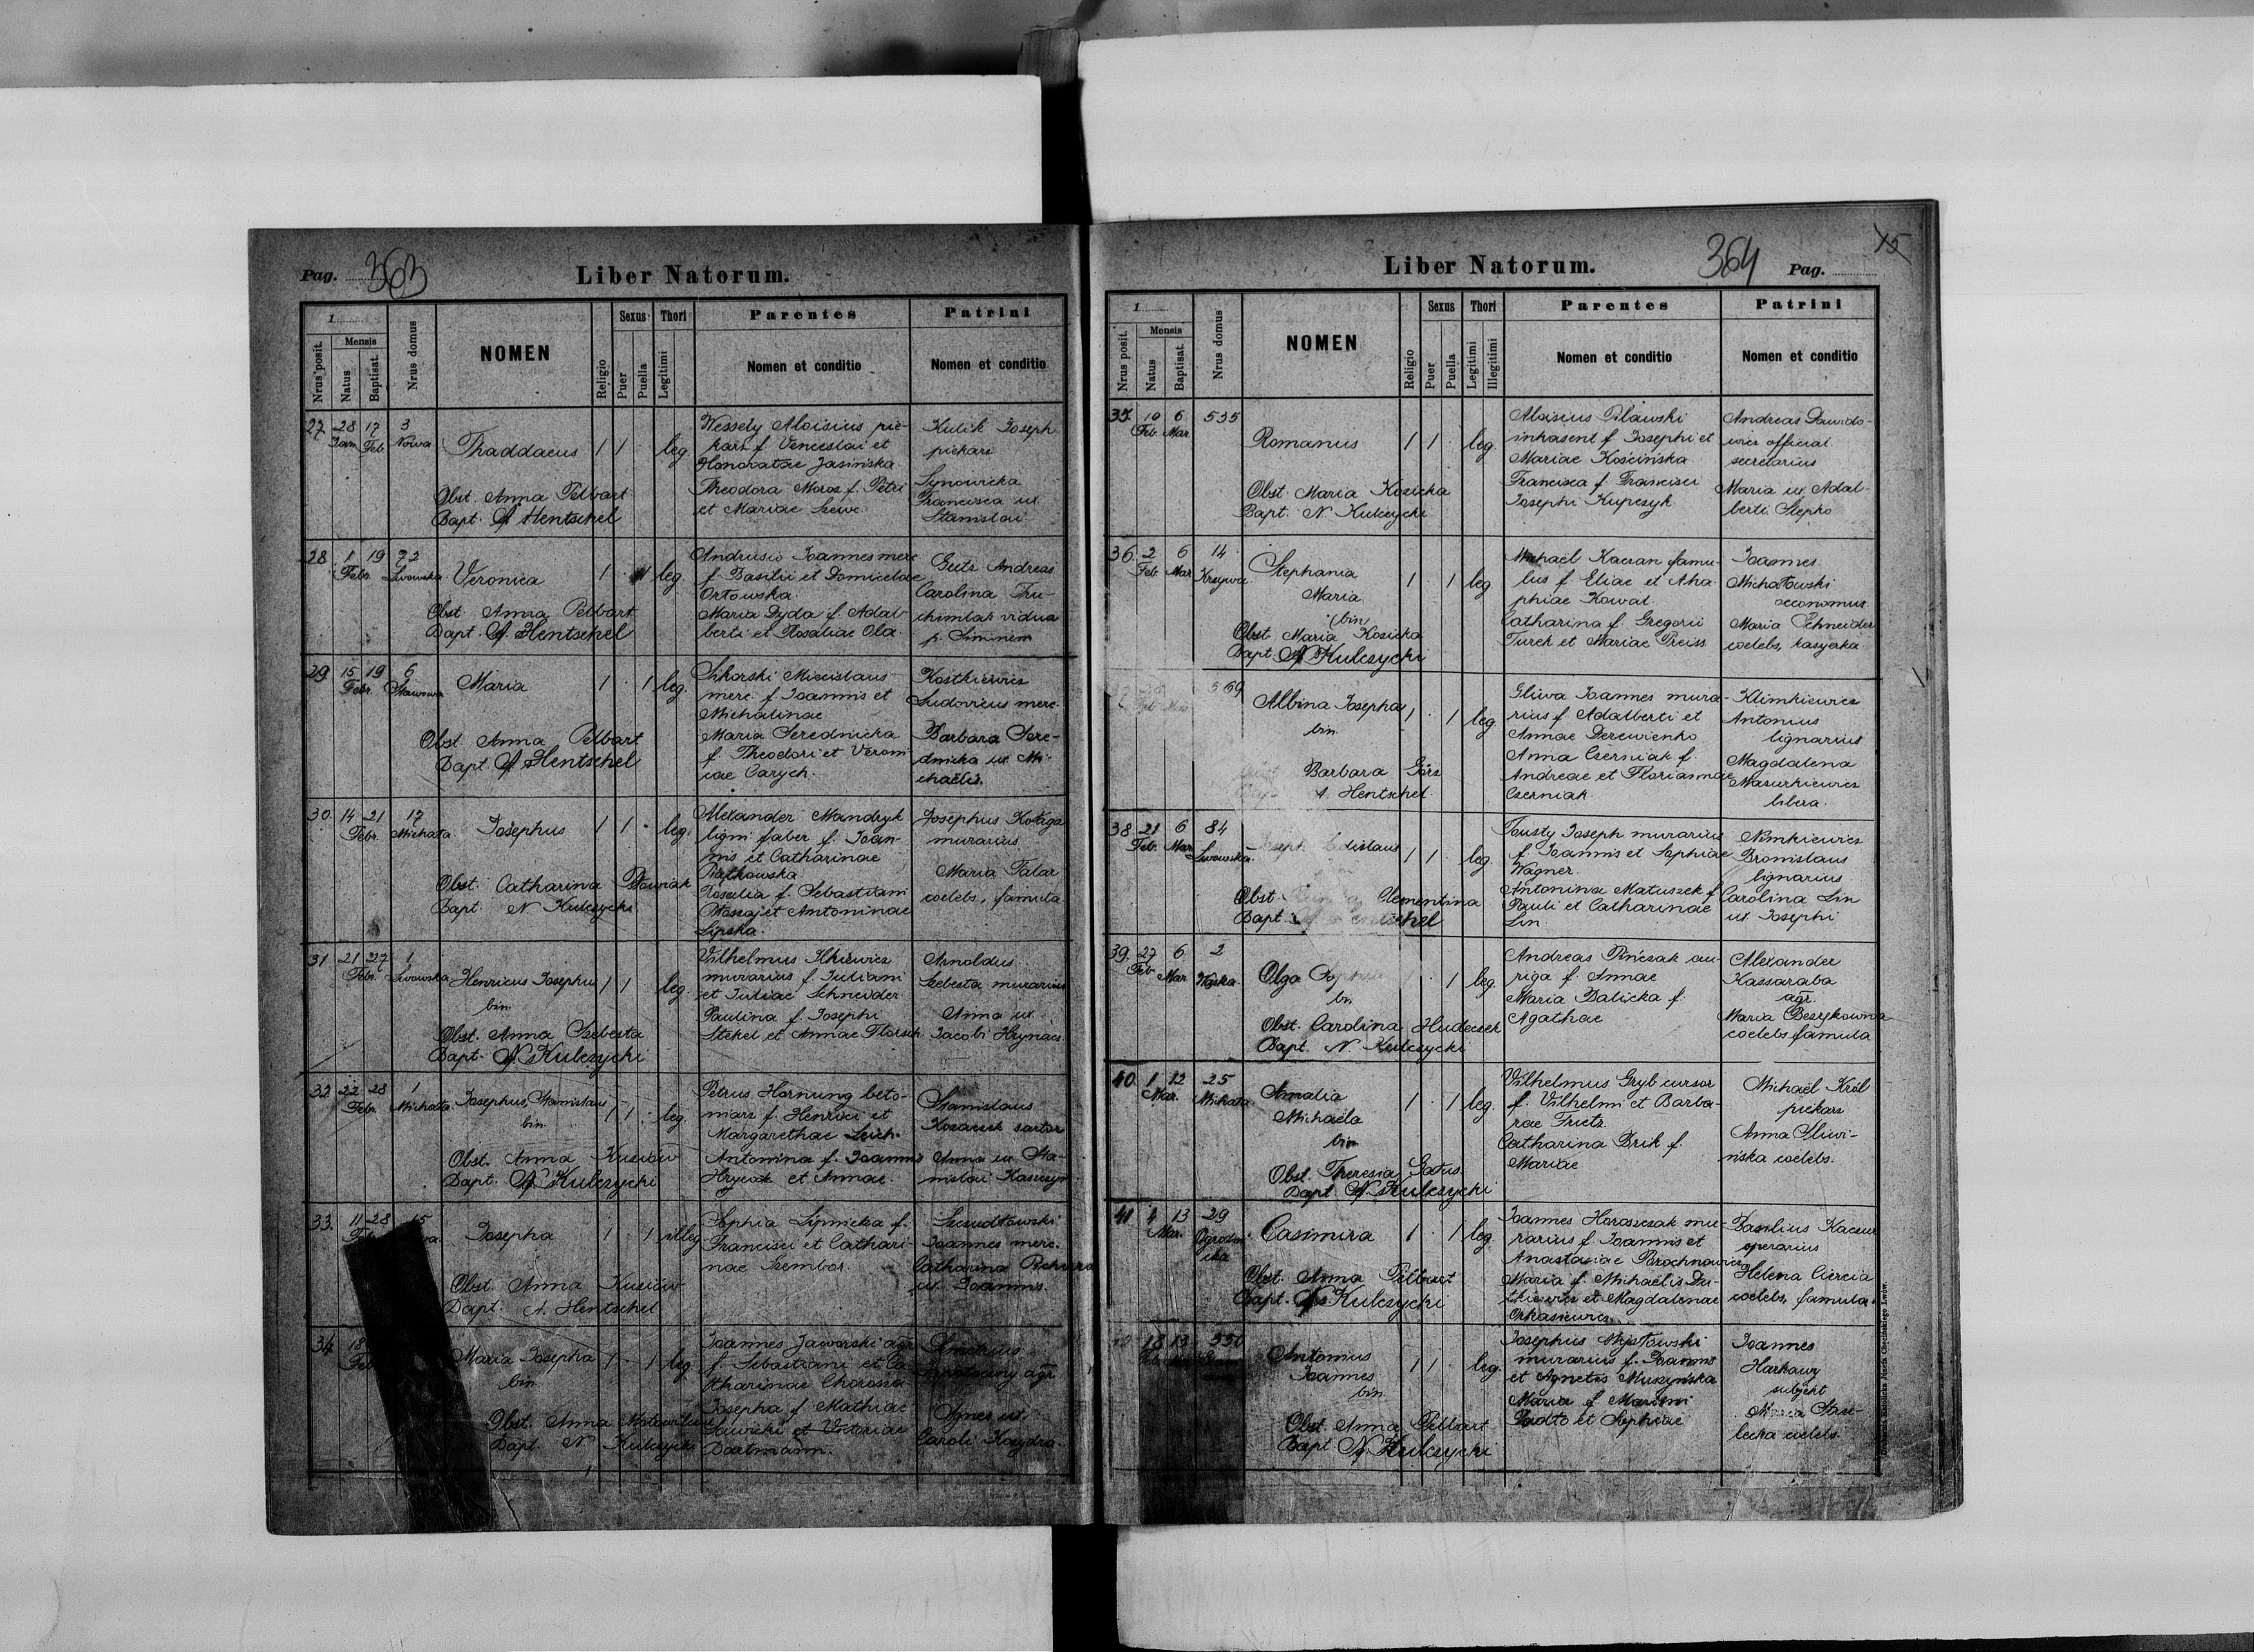 Pag. 363
Liber Natorum.
1
Nrus posit.
Mensis
Natus
Baptisat.
Nrus domus
NOMEN
Religio
Sexus
Puer
Puella
Thori
Legitimi
Parentes
Nomen et conditio
Patrini
Nomen et conditio
27 28 17 3
Jan. Feb. Nowa
Thaddaeus 1 1 · leg.
Obst. Anna Pelbart
Bapt. A. Hentschel
Wessely Aloisius pie-
karz f. Venceslai et
Honoratae Jasińska
Theodora Moroz f. Petri
et Mariae Szewc.
Kulik Joseph
piekarz
Synowicka
Francisca ux.
Stanislai
28 1 19 72
Febr. Lwowska
Veronica 1 · 1 leg.
Obst. Anna Pelbart
Bapt. A. Hentschel
Andrusio Joannes merc
f. Basilii et Domicelae
Orłowska.
Maria Dyda f. Adal-
berti et Rosaliae Ola.
Gutz Andreas
Carolina
vidua
29 15 19 6
Febr. Stawowa
Maria 1 · 1 leg.
Obst. Anna Pelbart
Bapt. A. Hentschel
Sikorski Miecislaus
merc. f. Joannis et
Michalinae
Maria Serednicka
f. Theodori et Veroni
cae Carych.
Kostkiewicz
Ludovicus merc.
Barbara Sere-
dnicka ux. Mi-
chaelis.
30. 14 21 17
Febr. Michała
Josephus 1 1 · leg.
Obst. Catharina
Bapt. N. Kulczycki
Alexander Mandryk
ligni faber f. Joan-
nis et Catharinae
Piątkowska.
Rosalia f. Sebastiani
et Antoninae
Lipska.
Josephus Kołaga
murarius
Maria Talar
coelebs, famula
31 21 27 1
Febr. Lwowska
Henricus Josephus 1 1 leg.
bin.
Obst. Anna Szebesta
Bapt. N. Kulczycki
Vilhelmus Ilkiewicz
murarius f. Juliani
et Juliae Schneider
Paulina f. Josephi
Stekel et Annae Florsch.
Arnoldus
Szebesta murarius
Anna ux.
Jacobi Hrynacz.
32 22 28 1
Febr. Michała
Josephus, Stanislaus 1 1 · leg.
bin.
Obst. Anna Kusiów
Bapt. N. Kulczycki
Petrus Hornung beto-
niarz f. Henrici et
Margarethae Leich.
Antonina f. Joannis
et Annae.
Stanislaus
Kozaczek sartor
Anna ux. Sta-
nislai
33. 11 28 15
Josepha 1 · 1 illeg.
Obst. Anna Kusiów
Bapt. A. Hentschel
Sophia Lipnicka f.
Francisci et Cathari-
nae Szembor.
Szczudłowski
Joannes merc.
Catharina
ux. Joannis.
34. 18
Feb
Maria Josepha 1 · 1 leg.
bin.
Obst. Anna
Bapt. N. Kulczycki
Joannes Jaworski agr.
f. Sebastiani et Ca
tharinae Chorosza
Josepha f. Mathiae
Sawicki et Victoriae
Bartmann.
agr.
Agnes ux.
Caroli Kozydra.
15
364 Pag.
Liber Natorum.
1
Nrus posit.
Mensis
Natus
Baptisat.
Nrus domus
NOMEN
Religio
Sexus
Puer
Puella
Thori
Legitimi
Illegitimi
Parentes
Nomen et conditio
Patrini
Nomen et conditio
35. 19 6 535
Feb. Mar.
Romanus 1 1 · leg.
Obst. Maria Kozicka
Bapt. N. Kulczycki
Aloisius Pilawski
f. Josephi et
Mariae Kościńska
Francisca f. Francisci
Josephi Kupczyk.
Andreas Dawido-
wicz official.
secretarius
Maria ux. Adal-
berti Stepko
36. 2 6 14
Feb Mar. Krzywa
Stephania 1 · 1 leg
Maria
(bin)
Obst. Maria Kozicka
Bapt. N. Kulczycki
Michael Kaczan famu-
lus f. Eliae et Aha-
phiae Kowal.
Catharina f. Gregorii
Turek et Mariae Preiss
Joannes
Michałowski
oeconomus
Maria Schneider
coelebs, kasyerka
569
Albina Josepha 1 · 1 leg.
bin.
Barbara Górz
A. Hentschel.
Sliwa Joannes mura-
rius f. Adalberti et
Annae Derewienko
Anna Czerniak f.
Andreae et Floriannae
Czerniak.
Klimkiewicz
Antonius
lignarius
Magdalena
Mazurkiewicz
libera.
38. 21 6 84
Feb. Mar. Lwowska.
Joseph 1 1 · leg.
Obst. Clementina
Bapt.
Fausty Joseph murarius
f. Joannis et Sophiae
Wagner.
Antonina Matuszek f.
Pauli et Catharinae
Lin
Nimkiewicz
Bronislaus
lignarius
Carolina Lin
ux Josephi
39. 27 6 2
Feb. Mar.
Olga · 1 leg.
bn
Obst. Carolina Hudeczek
Bapt. N. Kulczycki
Andreas Pińczak au-
riga f. Annae
Maria Balicka f.
Agathae
Alexander
Kassaraba
agr.
Maria
coelebs famula
40. 1 12 25
Mar. Michała
Amalia 1 · 1 leg.
Michaëla
bin
Obst. Theresia Gatus
Bapt. N. Kulczycki
Vilhelmus Gryb cursor
f. Vilhelmi et Barba-
rae Frietz.
Catharina Brik f.
Mariae
Michaël Król
piekarz
Anna Sliwi-
ńska coelebs.
41 4 13 29
Mar. Ogrodni
cka
Casimira 1 · 1 leg.
Obst. Anna Pelbart
Bapt. N. Kulczycki
Joannes Horoszczak mu-
rarius f. Joannis et
Anastasiae
Maria f. Michaelis Du-
tkiewicz et Magdalenae
Basilius Kaczur
operarius
Helena Ciercia
coelebs, famula.
18 13 550
Feb.
Antonius 1 1 · leg.
Joannes
bin.
Obst. Anna Pelbart
Bapt. N. Kulczycki
Josephus Mysłowski
murarius f. Joannis
et Agnetis Muszyńska
Maria f. Maximi
et Sophiae
Joannes
Harkawy
subjekt
Maria
coelebs.